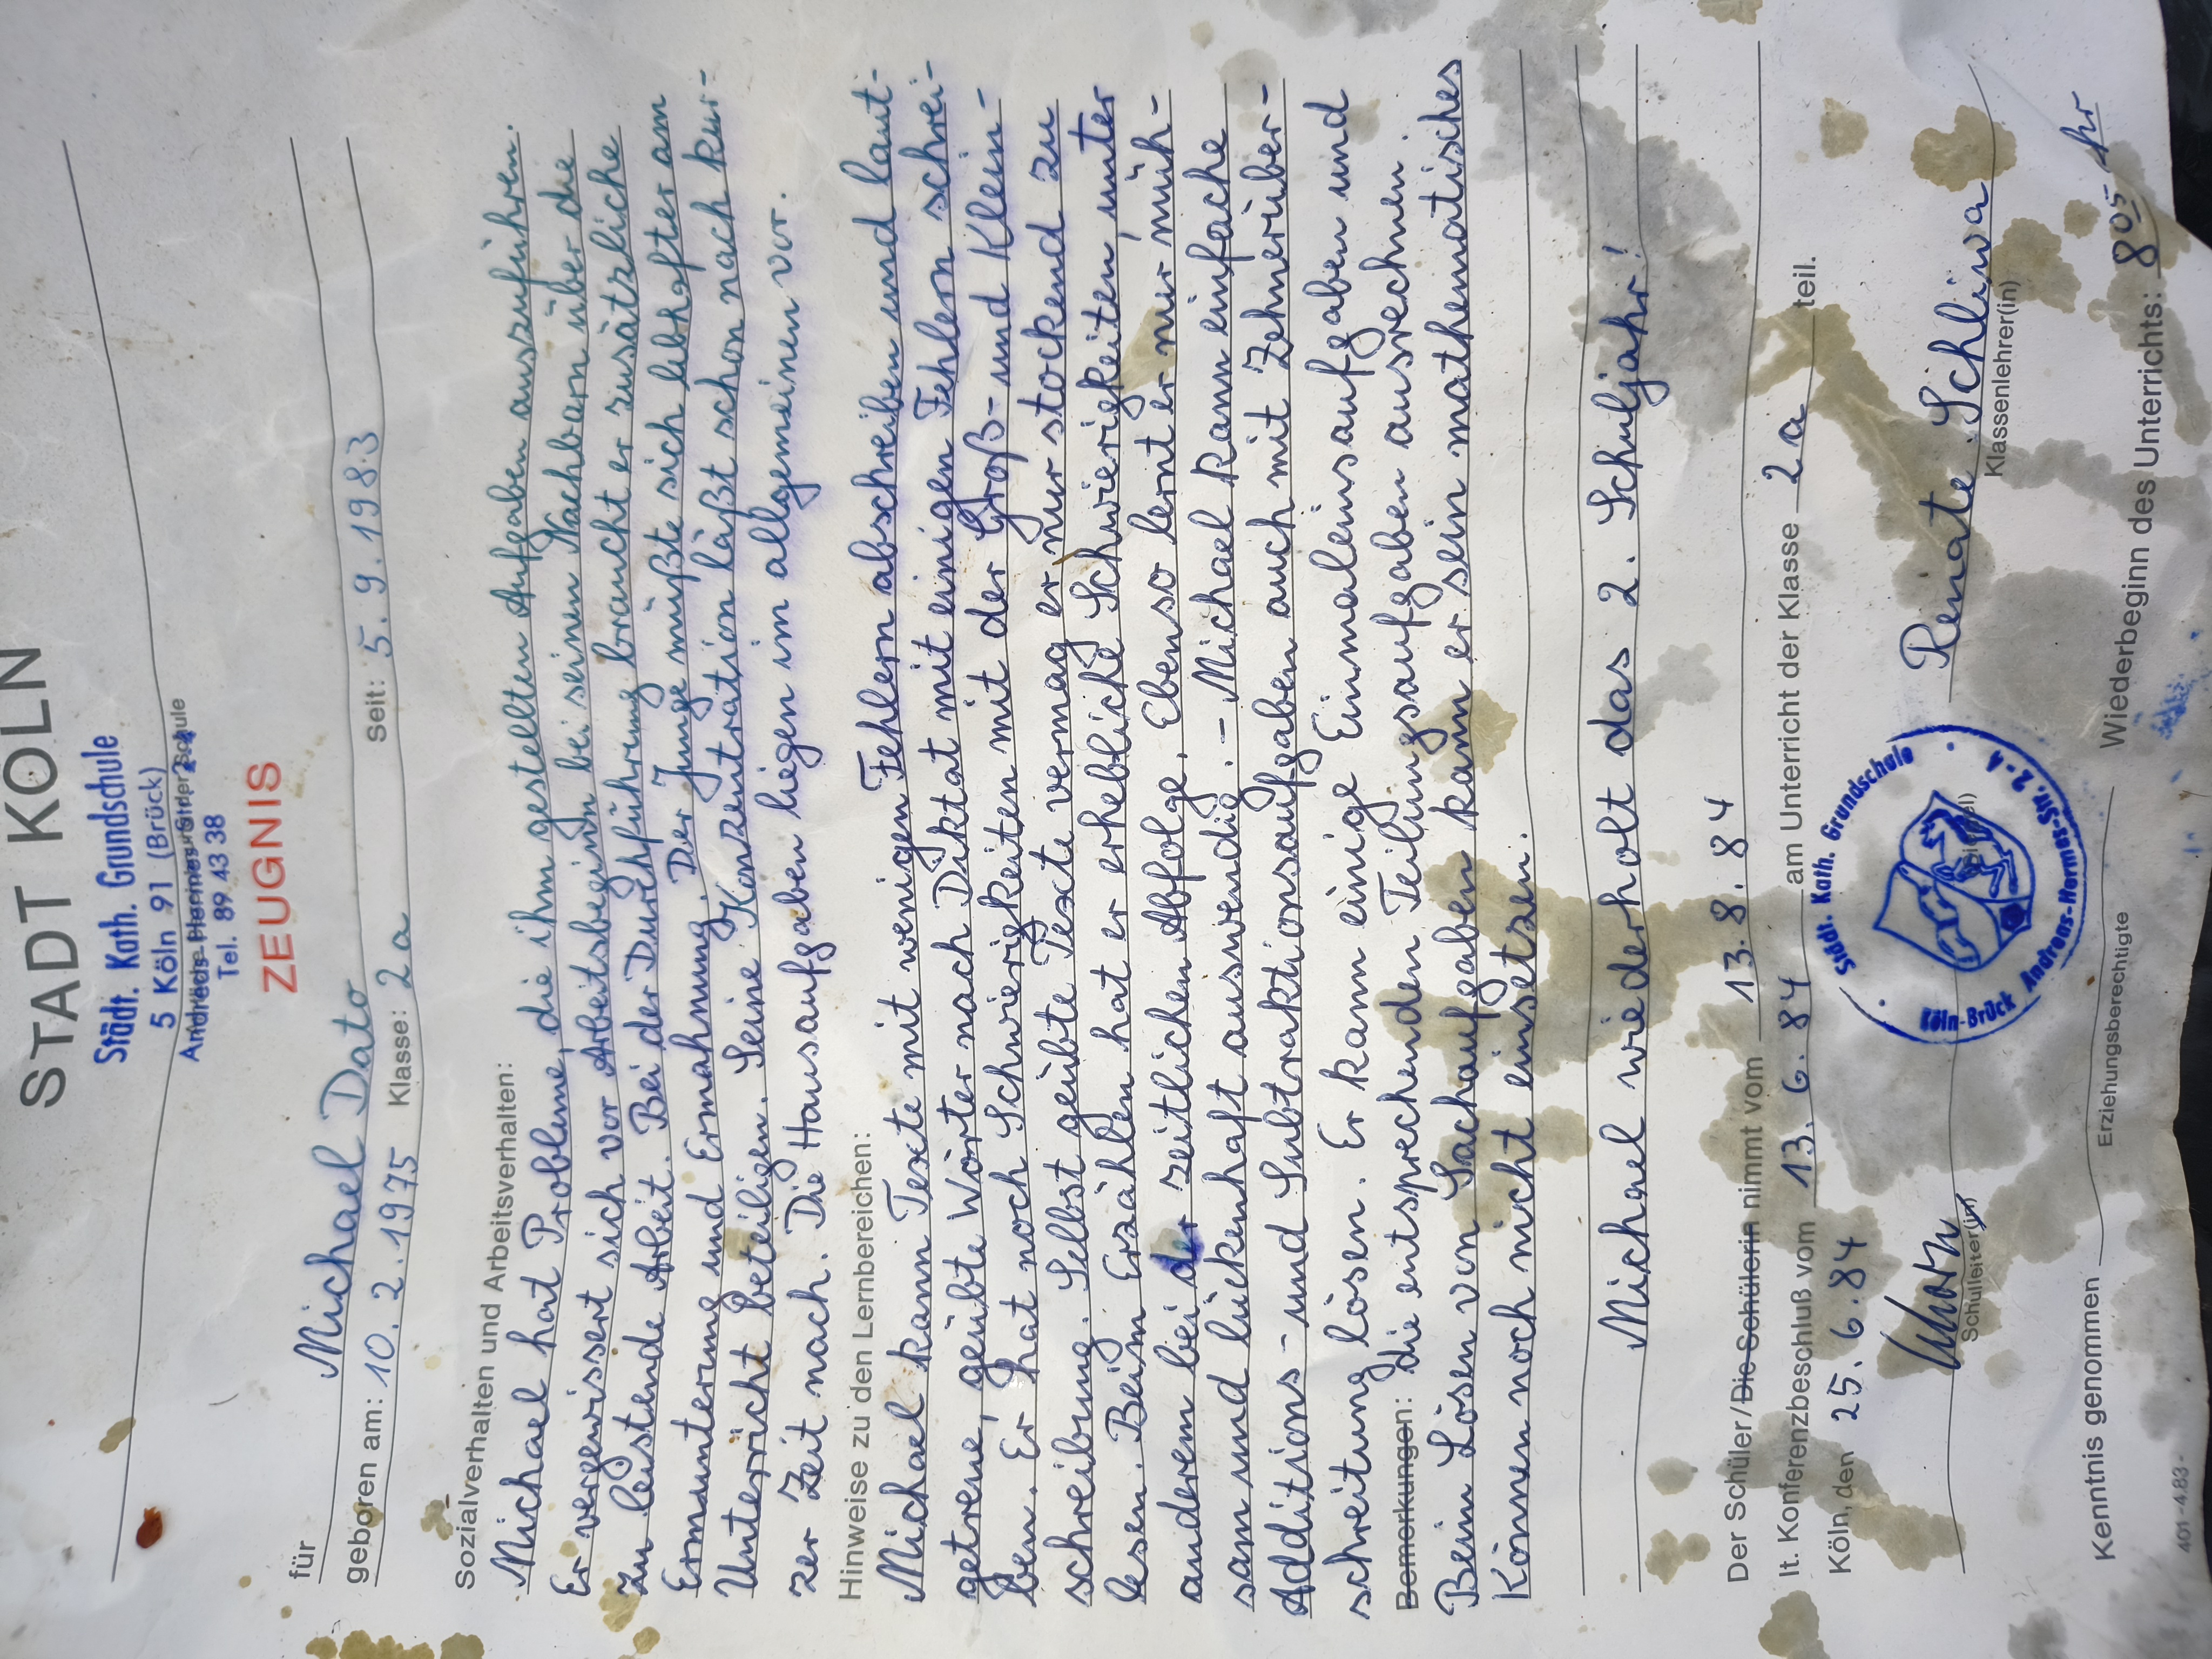 STADT KÖLN
Städt. Kath. Grundschule
5 Köln 91 (Brück)
Andreas-Hermes-Str. 2-4
Tel. 89 43 38
ZEUGNIS
für Michael Dato
geboren am: 10. 2. 1975 Klasse: 2a seit: 5. 9. 1983
Sozialverhalten und Arbeitsverhalten:
Michael hat Probleme, die ihm gestellten Aufgaben auszuführen.
Er vergewissert sich vor Arbeitsbeginn bei seinen Nachbarn über die
zu leistende Arbeit. Bei der Durchführung braucht er zusätzliche
Ermunterung und Ermahnung. Der Junge müßte sich lebhafter am
Unterricht beteiligen. Seine Konzentration läßt schon nach kur-
zer Zeit nach. Die Hausaufgaben liegen im allgemeinen vor.
Hinweise zu den Lernbereichen:
Michael kann Texte mit wenigen Fehlern abschreiben und laut-
getreue, geübte Wörter nach Diktat mit einigen Fehlern schrei-
ben. Er hat noch Schwierigkeiten mit der Groß- und Klein-
schreibung. Selbst geübte Texte vermag er nur stockend zu
lesen. Beim Erzählen hat er erhebliche Schwierigkeiten, unter
anderem bei der zeitlichen Abfolge. Ebenso lernt er nur müh-
sam und lückenhaft auswendig. – Michael kann einfache
Additions- und Subtraktionsaufgaben auch mit Zehnerüber-
schreitung lösen. Er kann einige Einmaleinsaufgaben und
Bemerkungen: die entsprechenden Teilungsaufgaben ausrechnen.
Beim Lösen von Sachaufgaben kann er sein mathematisches
Können noch nicht einsetzen.
Michael wiederholt das 2. Schuljahr!
Der Schüler/Die Schülerin nimmt vom 13. 8. 84
lt. Konferenzbeschluß vom 13. 6. 84 am Unterricht der Klasse 2a teil.
Köln, den 25. 6. 84
Städt. Kath. Grundschule
Köln-Brück Andreas-Hermes-Str. 2-4
Renate Schliwa
Schulleiter(in)
(Siegel)
Klassenlehrer(in)
Kenntnis genommen
Wiederbeginn des Unterrichts: 8 05 Uhr
Erziehungsberechtigte
401 - 4.83 -